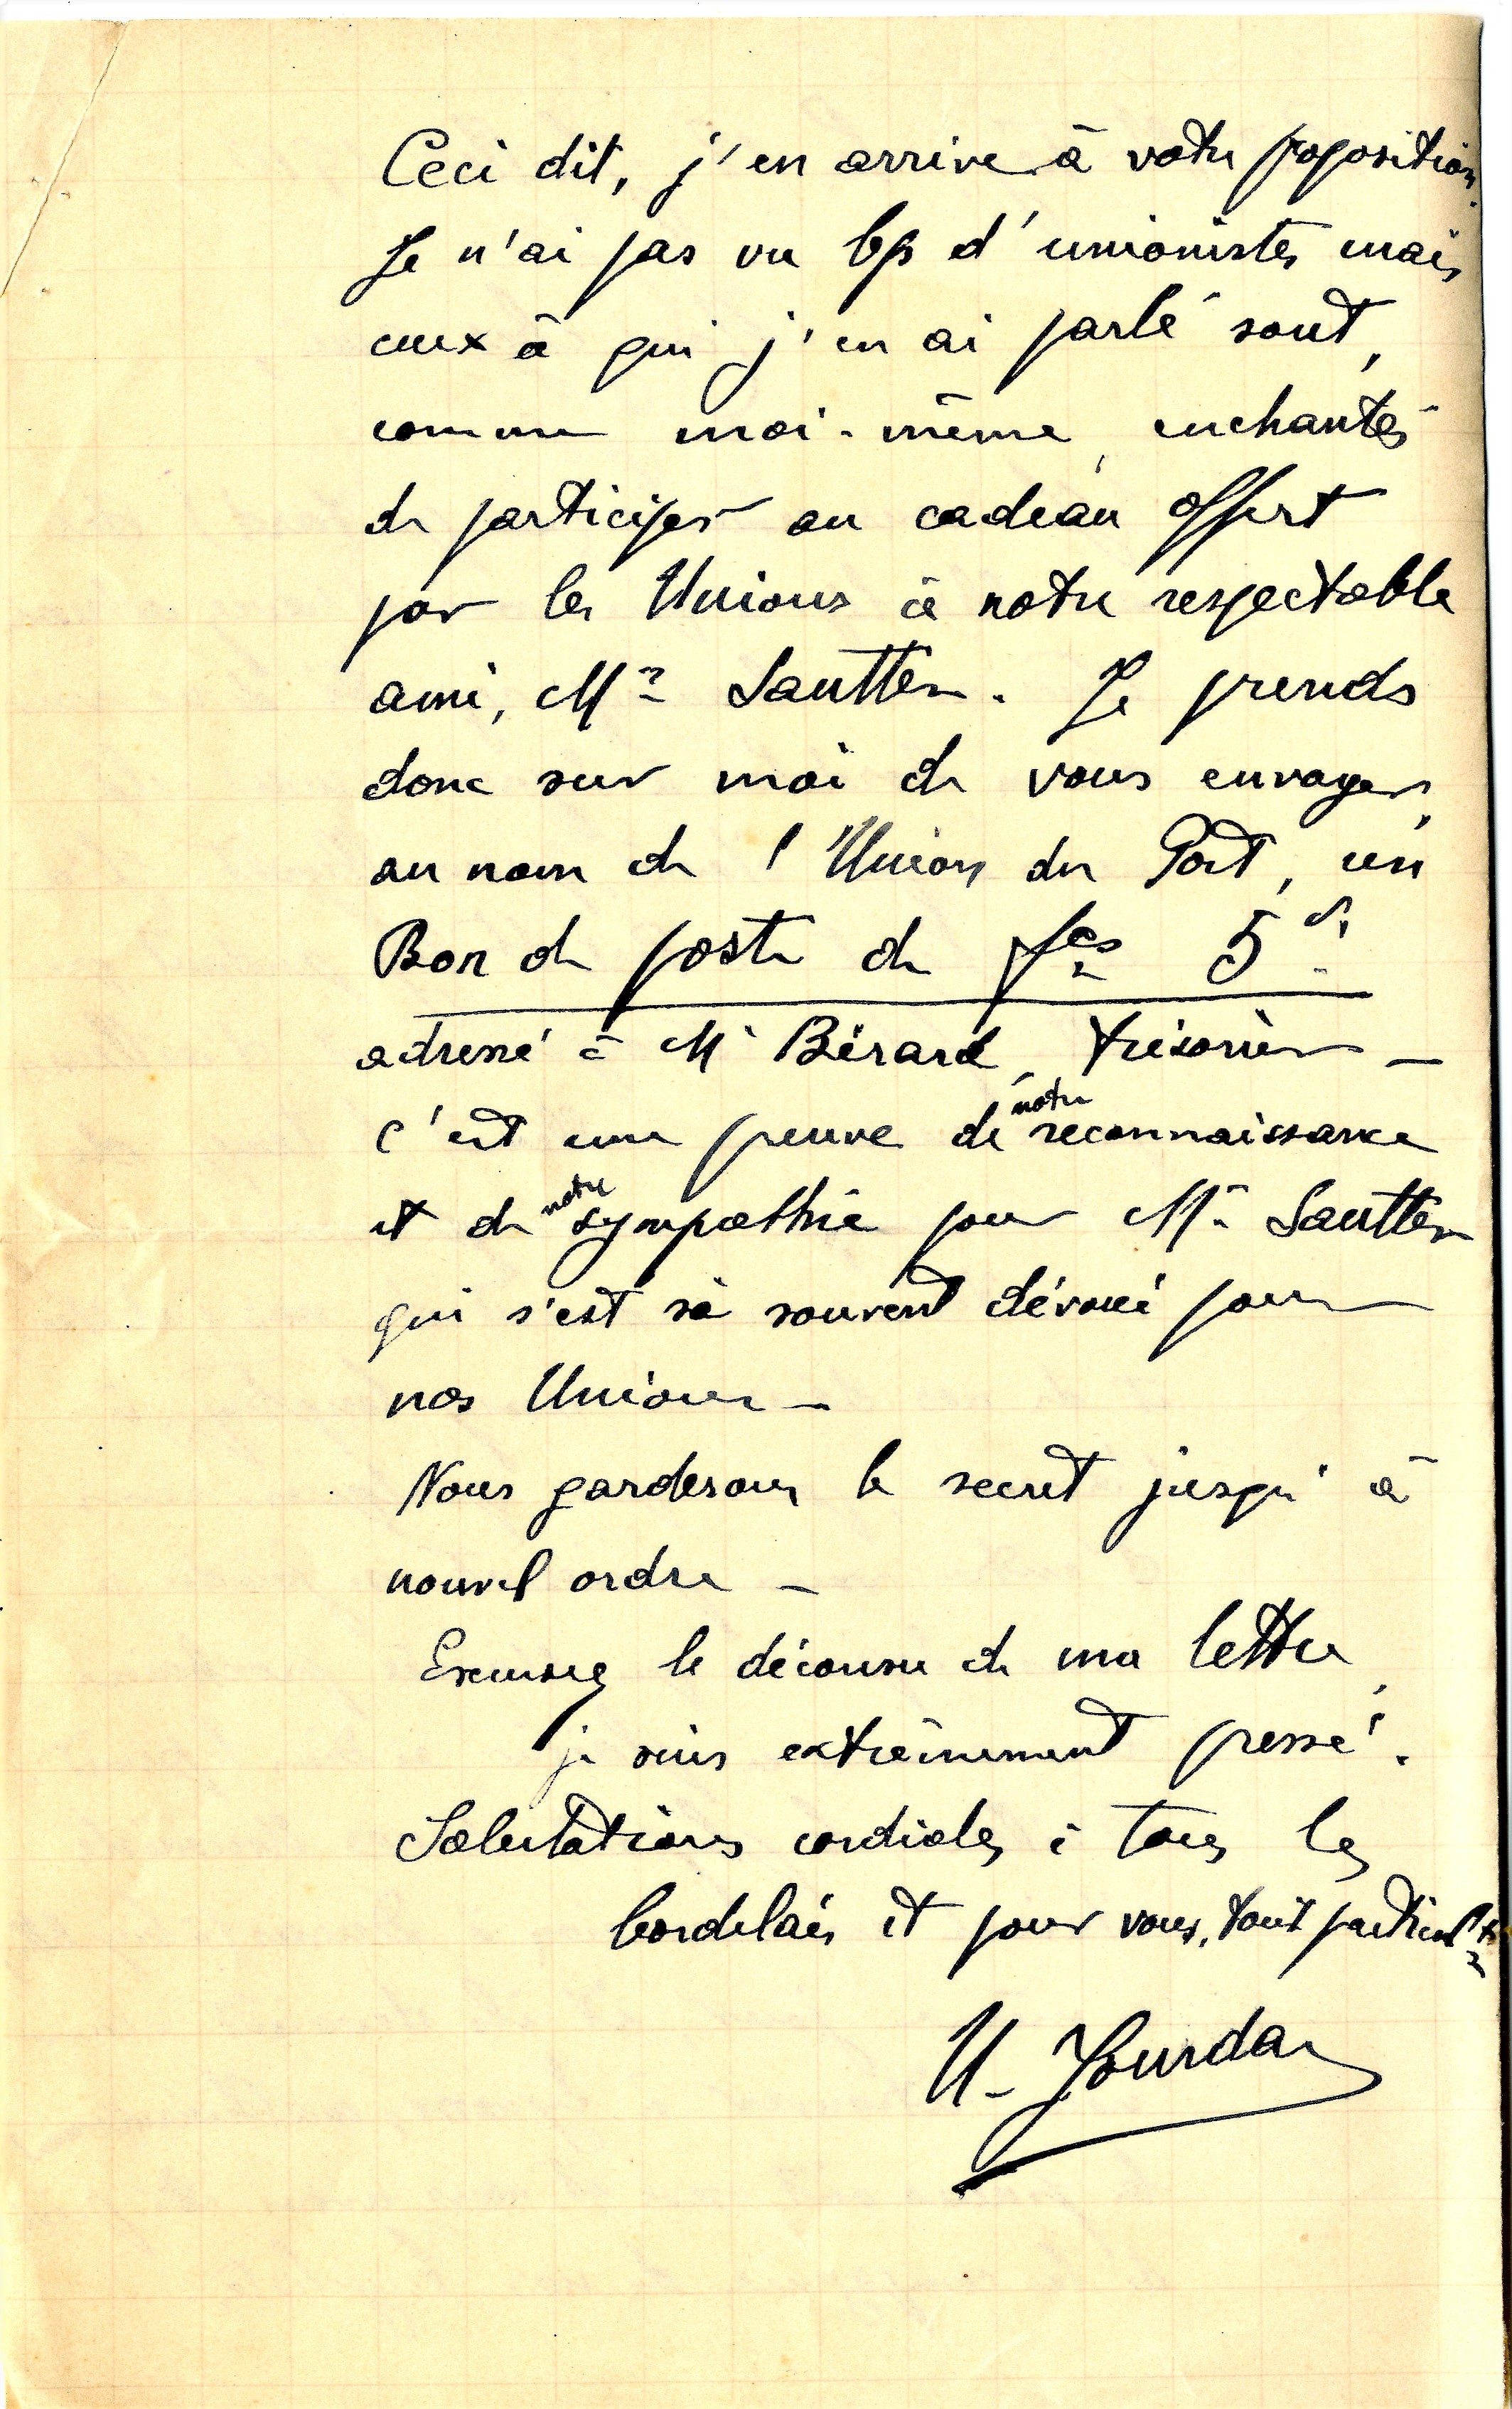 Ceci dit, j'en arrive à votre proposition.
Je n'ai pas vu bp d'unionistes mais
ceux à qui j'en ai parlé sont,
comme moi-même, enchantés
de participer au cadeau offert
par les Unions à notre respectable
ami, Mr Sautter. Je prends
donc sur moi de vous envoyer,
au nom de l'Union du Port, un
Bon de poste de fcs 5
adressé à Mr Bérard, trésorier —
c'est une preuve de notre reconnaissance
et de notre sympathie pour Mr Sautter
qui s'est si souvent dévoué pour
nos Unions —
Nous garderons le secret jusqu'à
nouvel ordre —
Excusez le décousu de ma lettre,
je suis extrêmement pressé.
Salutations cordiales à tous les
bordelais et pour vous, tout particult
U- Jourdan